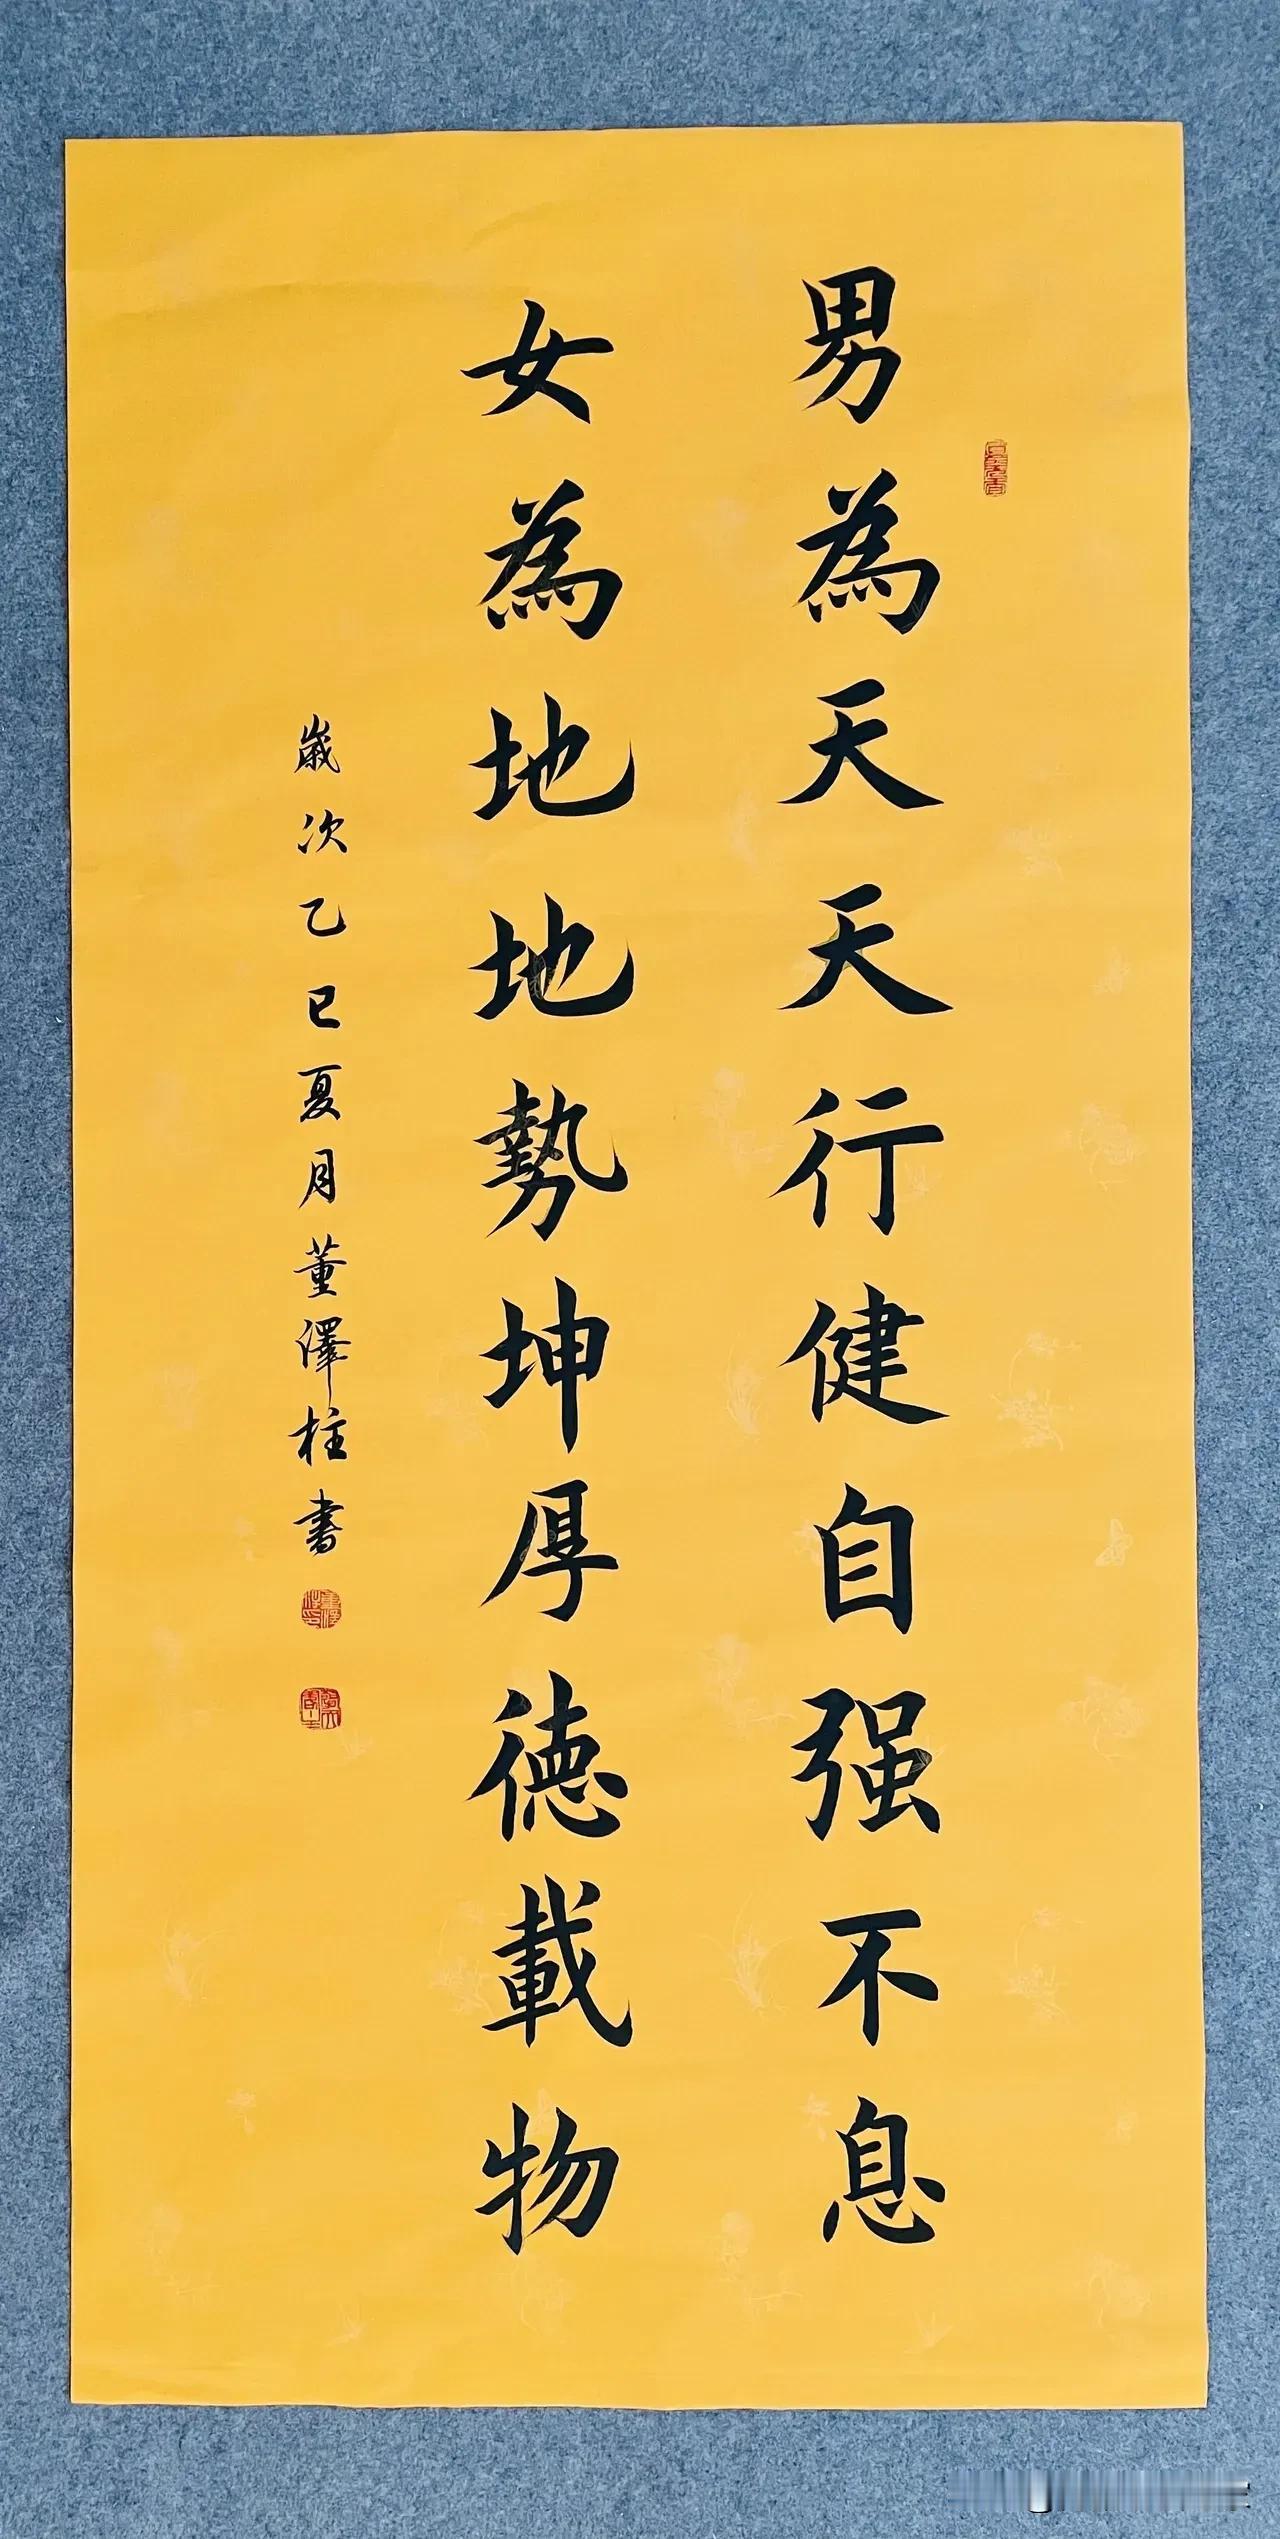 男為天天行健自强不息
女為地地勢坤厚德載物
歲次乙巳夏月董澤柱書